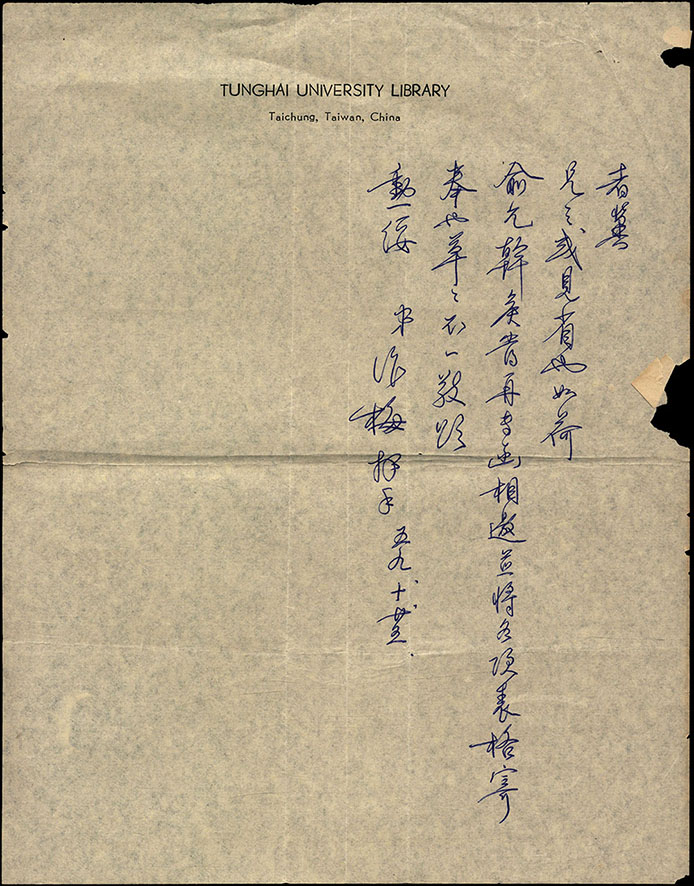 TUNGHAI UNIVERSITY LIBRARY
Taichung, Taiwan, China
者冀
兄之或見省也如荷
俞允幹侯當再專函相邀並將各項表格寄
奉也草〻不一敬頌
勳綏 弟作梅拜手 五九、十、廿五.